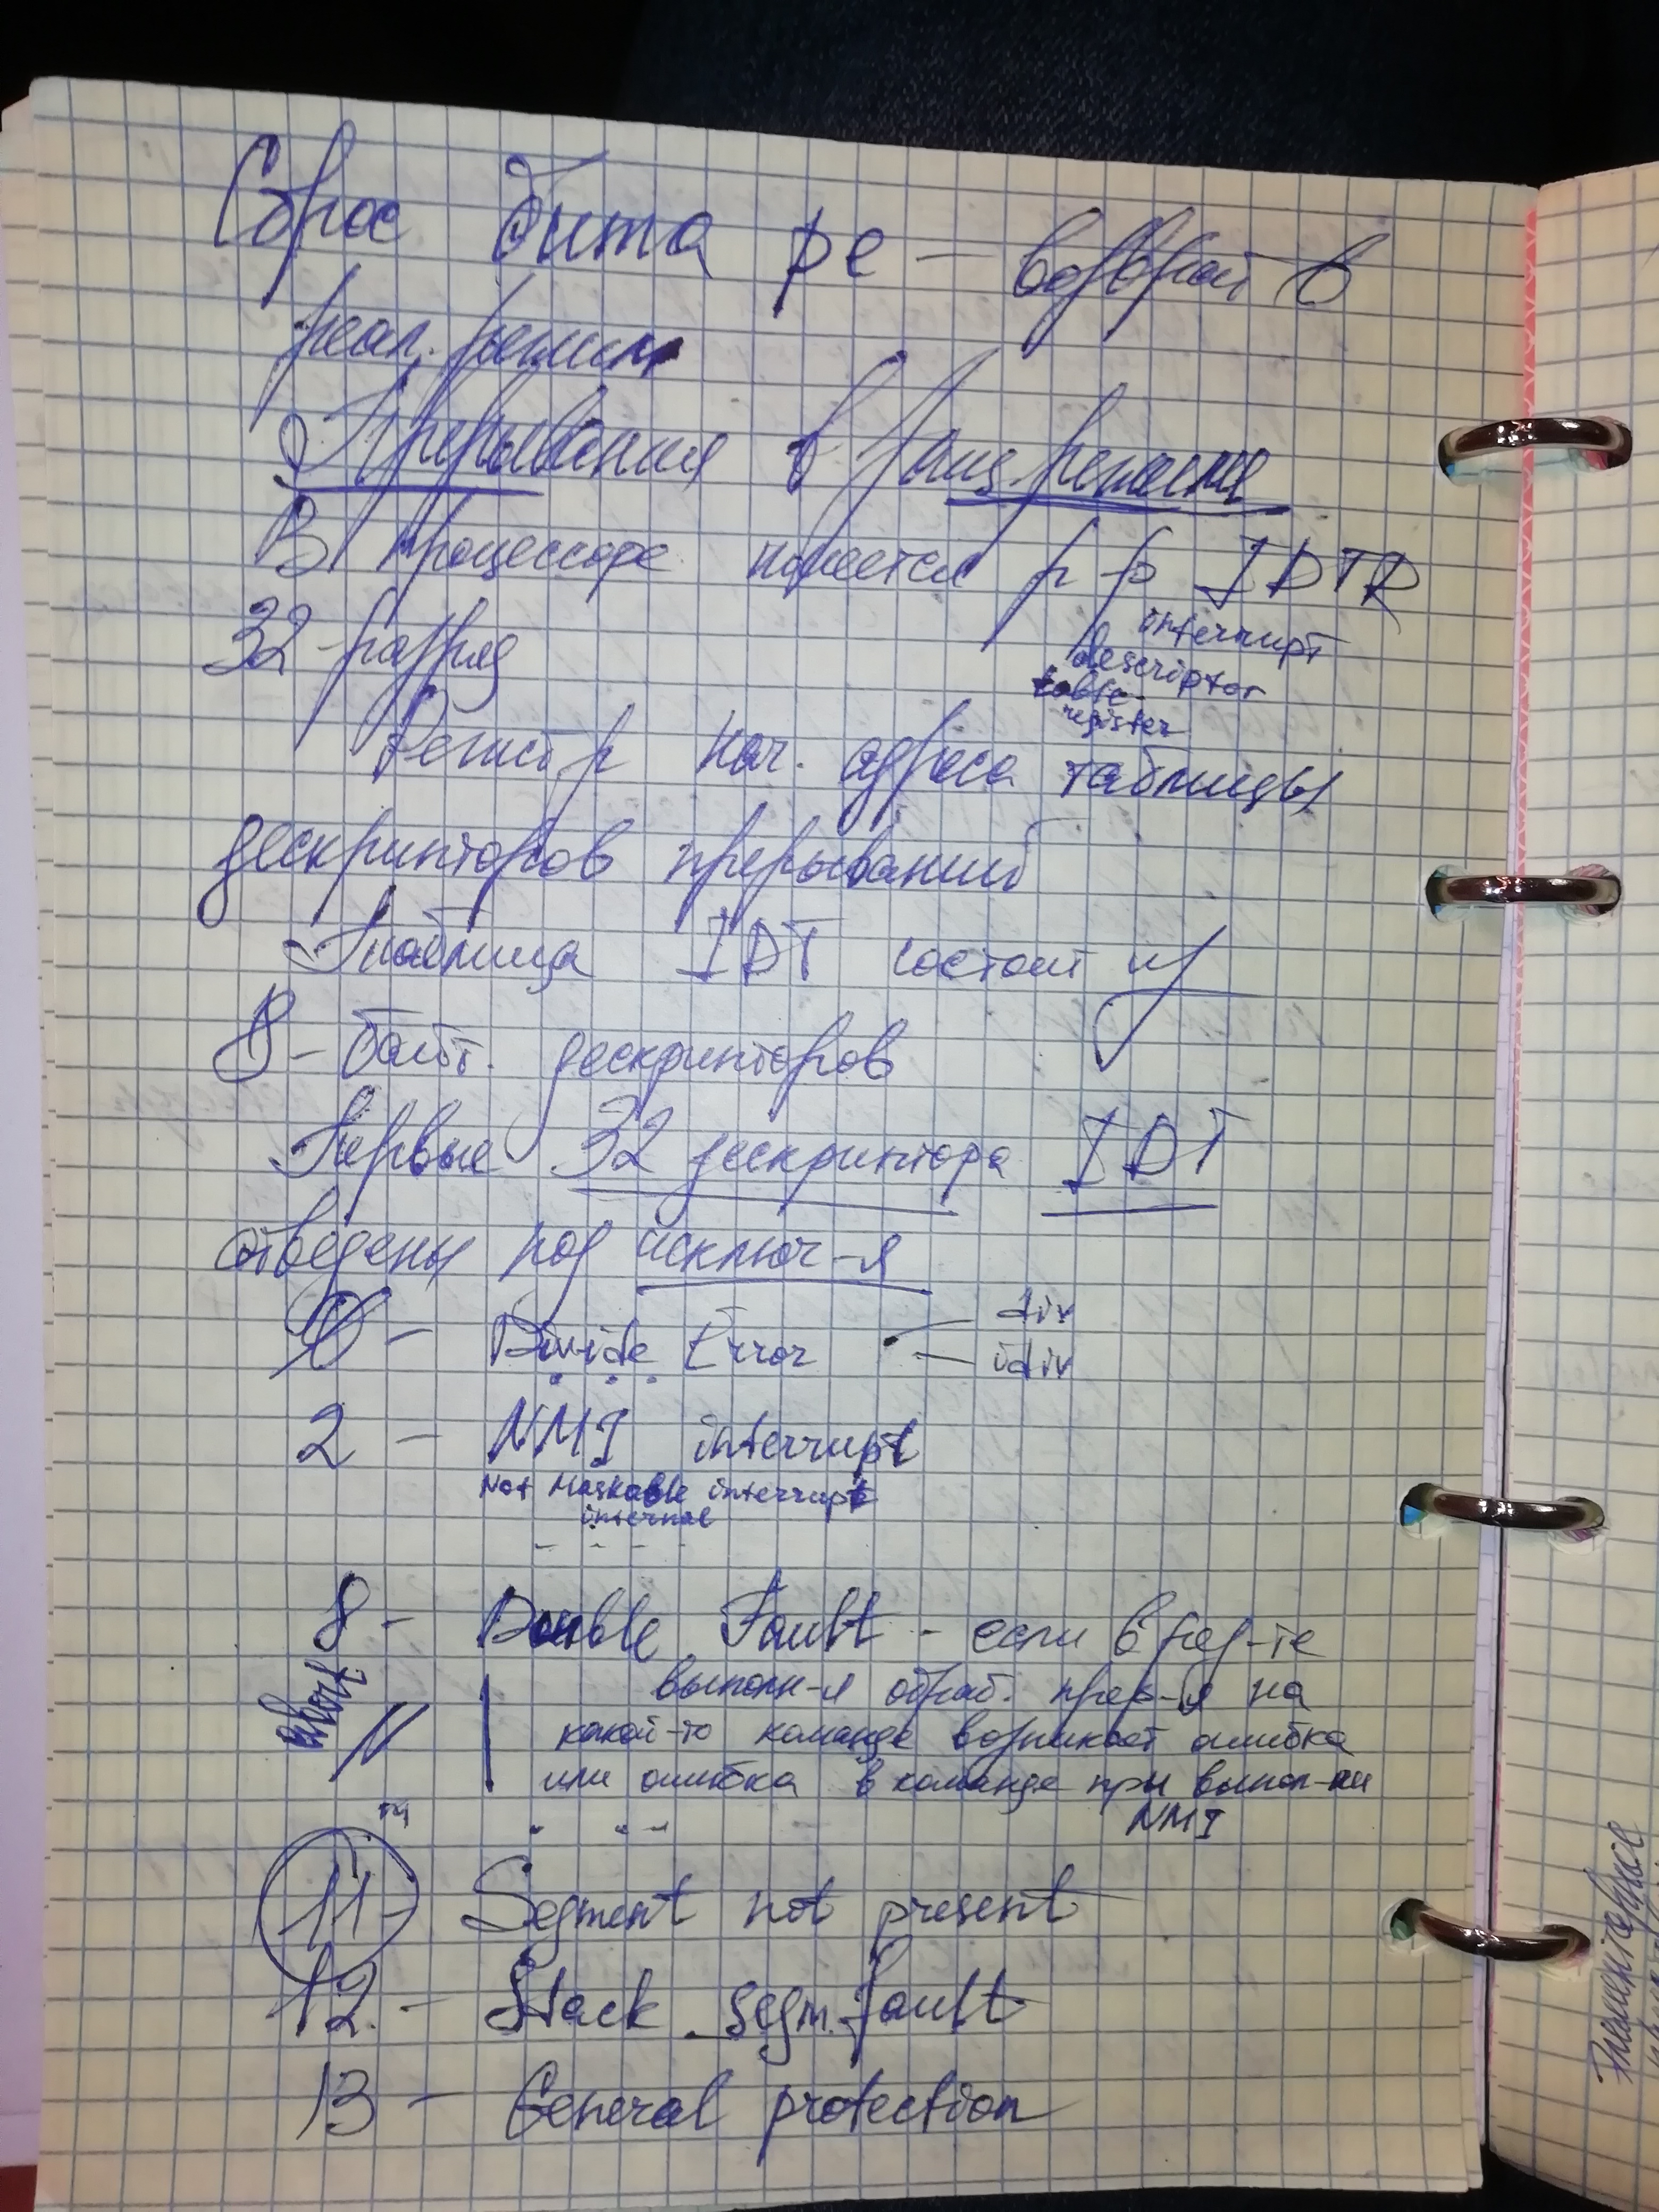 Сброс бита pe — возврат в
реал. режим
Прерывания в защ. режиме
В процессоре имеется р-р IDTR
interrupt
descriptor
table
register
32-разряд
Регистр нач. адреса таблицы
дескрипторов прерываний
Таблица IDT состоит из
8-байт. дескрипторов
Первые 32 дескриптора IDT
отведены под исключ-я
0 — Divide Error — div
— idiv
2 — NMI interrupt
Not Maskable interrupt
internal
8 — Double Fault - если в рез-те
abort
выполн-я обраб. прер-я на
какой-то команде возникает ошибка
или ошибка в команде при выпол-ии
NMI
11 - Segment not present
12. — Stack segm. fault
13 — General protection